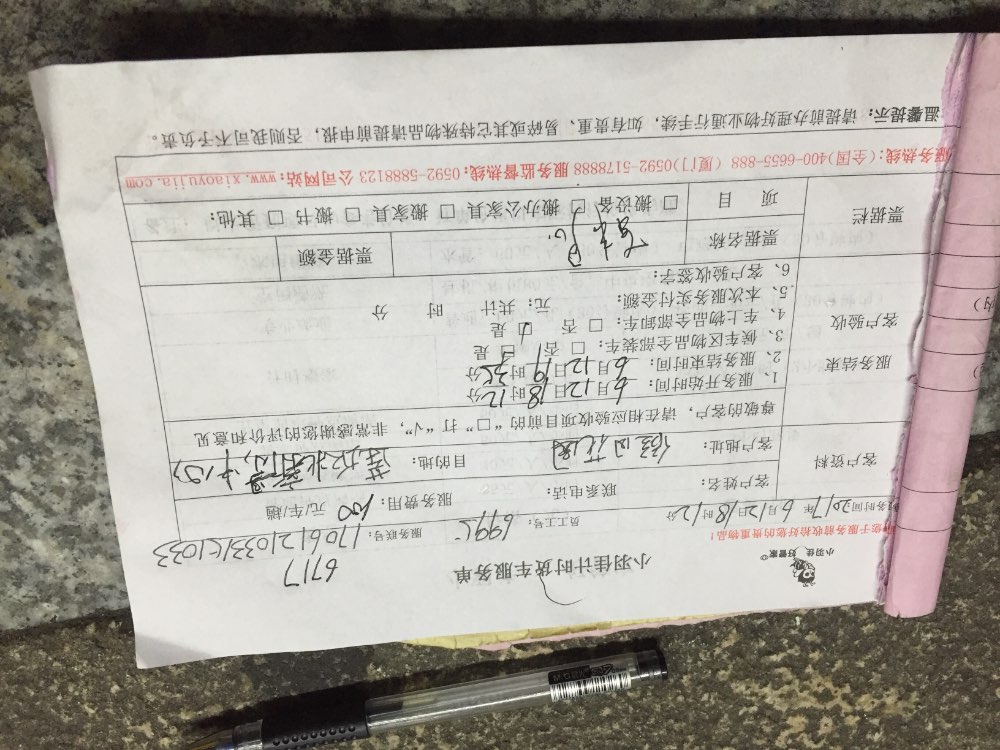 小羽佳 好管家
小羽佳计时货车服务单
6717
请您于服务前收拾好您的贵重物品!
服务时间:2017年6月12日18时12分
员工工号: 6995
服务联号:
客户资料
客户姓名:
联系电话:
服务费用: 100 元/车/趟
客户地址:
目的地:
尊敬的客户,请在相应验收项目前的“□”打“√”,非常感谢您的评价和意见
服务结束
客户验收
1、服务开始时间: 6月12日18时12分
2、服务结束时间: 6月12日19时35分
3、候车区物品全部装车:□ 否 □ 是
4、车上物品全部卸车:□ 否 □ 是
5、本次服务实付金额: 元;共计 时 分
6、客户验收签字:
票据栏
票据名称
票据金额
项 目
□ 搬设备 □ 搬办公家具 □ 搬家具 □ 搬书 □ 其他:
服务热线:(全国)400-6655-888 (厦门)0592-5178888 服务监督热线:0592-5888123 公司网站:www.xiaoyujia.com
温馨提示:请提前办理好物业通行手续,如有贵重、易碎或其它特殊物品请提前申报,否则我司不予负责。